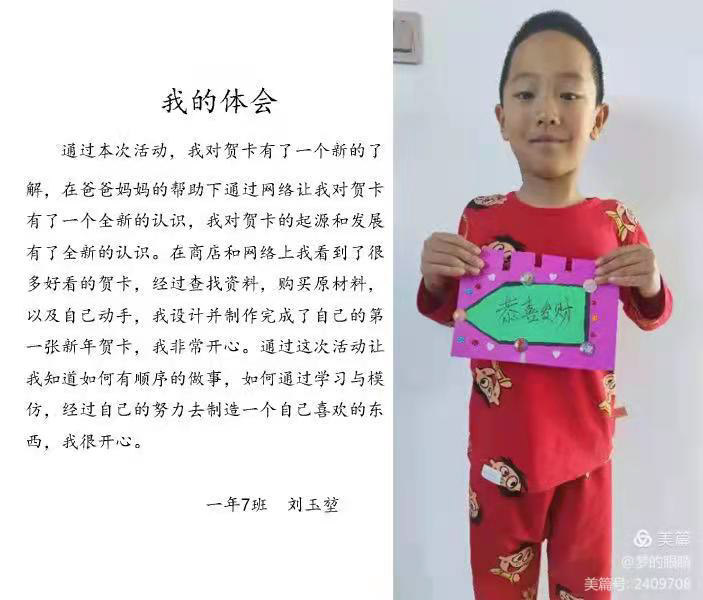 我的体会
通过本次活动，我对贺卡有了一个新的了
解，在爸爸妈妈的帮助下通过网络让我对贺卡
有了一个全新的认识，我对贺卡的起源和发展
有了全新的认识。在商店和网络上我看到了很
多好看的贺卡，经过查找资料，购买原材料，
以及自己动手，我设计并制作完成了自己的第
一张新年贺卡，我非常开心。通过这次活动让
我知道如何有顺序的做事，如何通过学习与模
仿，经过自己的努力去制造一个自己喜欢的东
西，我很开心。
一年7班 刘玉堃
恭喜发财
美篇
@梦的眼睛
美篇号: 2409708